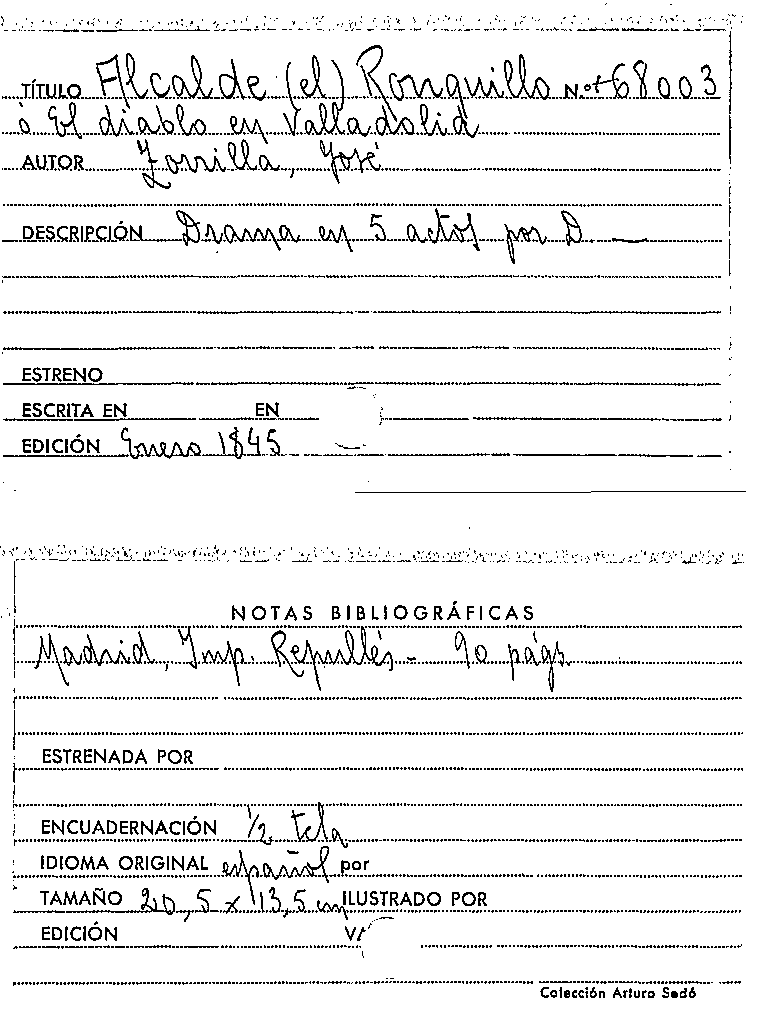 TÍTULO Alcalde (el) Ronquillo N.o 68003
ò El diablo en Valladolid
AUTOR Zorrilla, José
DESCRIPCIÓN Drama en 5 actos por D. —
ESTRENO
ESCRITA EN EN
EDICIÓN Enero 1845
NOTAS BIBLIOGRÁFICAS
Madrid, Imp. Repullés - 90 págs.
ESTRENADA POR
ENCUADERNACIÓN 1/2 tela
IDIOMA ORIGINAL español por
TAMAÑO 20,5 x 13,5 cm ILUSTRADO POR
EDICIÓN
Colección Arturo Sedó